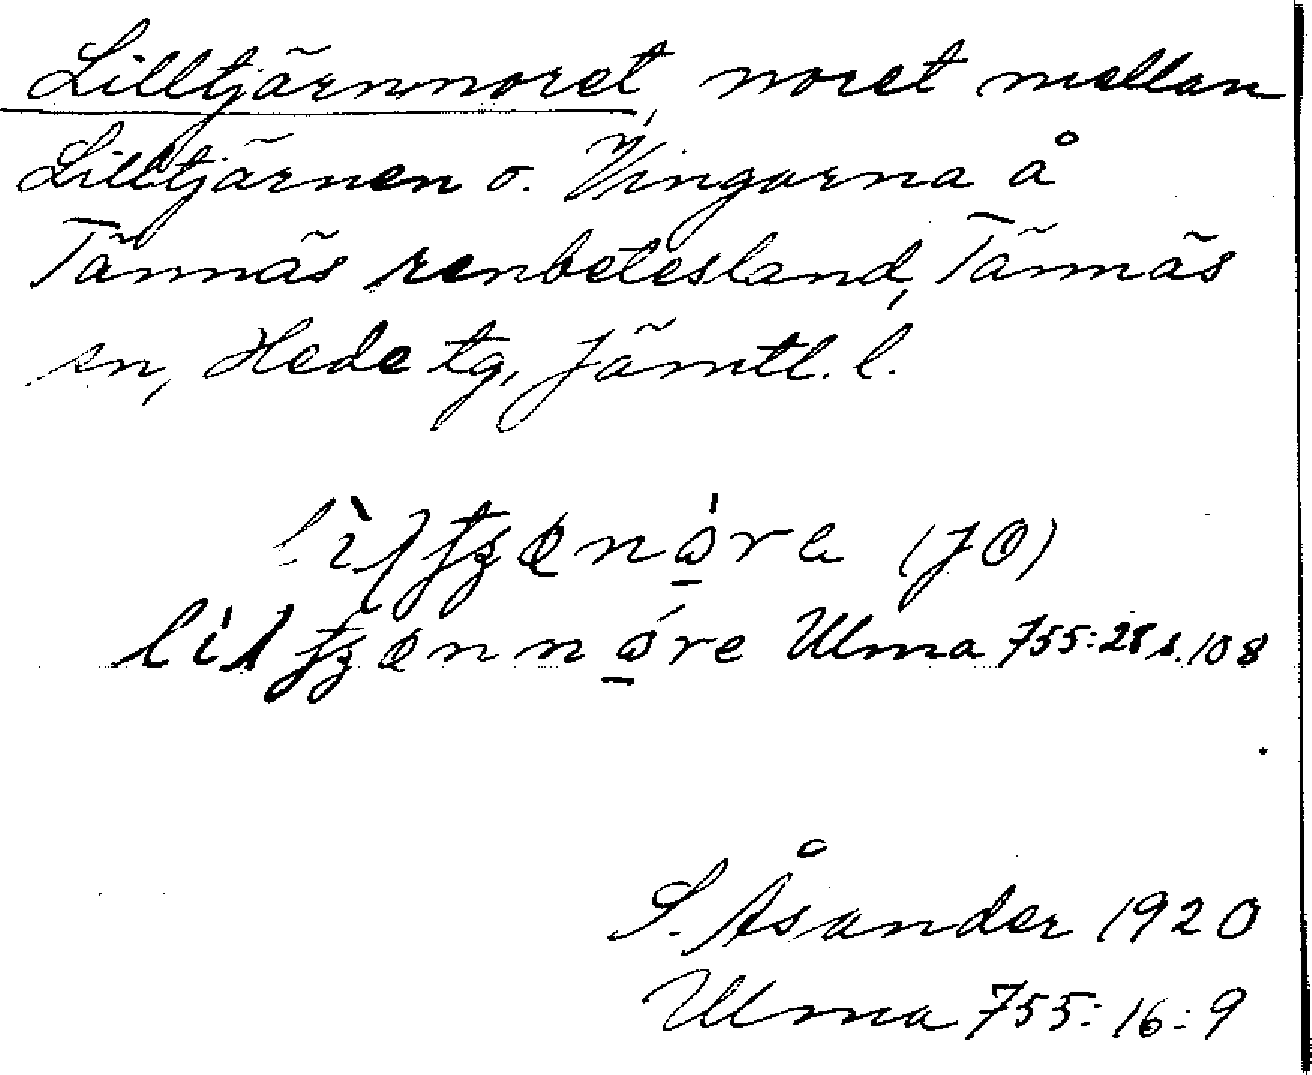 Lilltjärnnoret, noret mellan
Lilltjärnen o. Vingarna å
Tännäs renbetesland, Tännäs
sn, Hede tg, Jämtl. l.
(JO)
Ulma 755:28 s. 108
S. Åsander 1920
Ulma 755:16:9